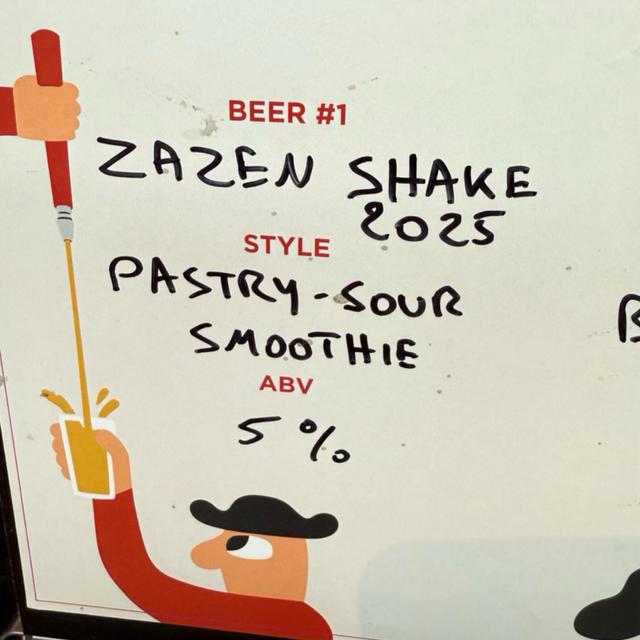 BEER #1
ZAZEN SHAKE
2025
STYLE
PASTRY-SOUR
SMOOTHIE
ABV
5%